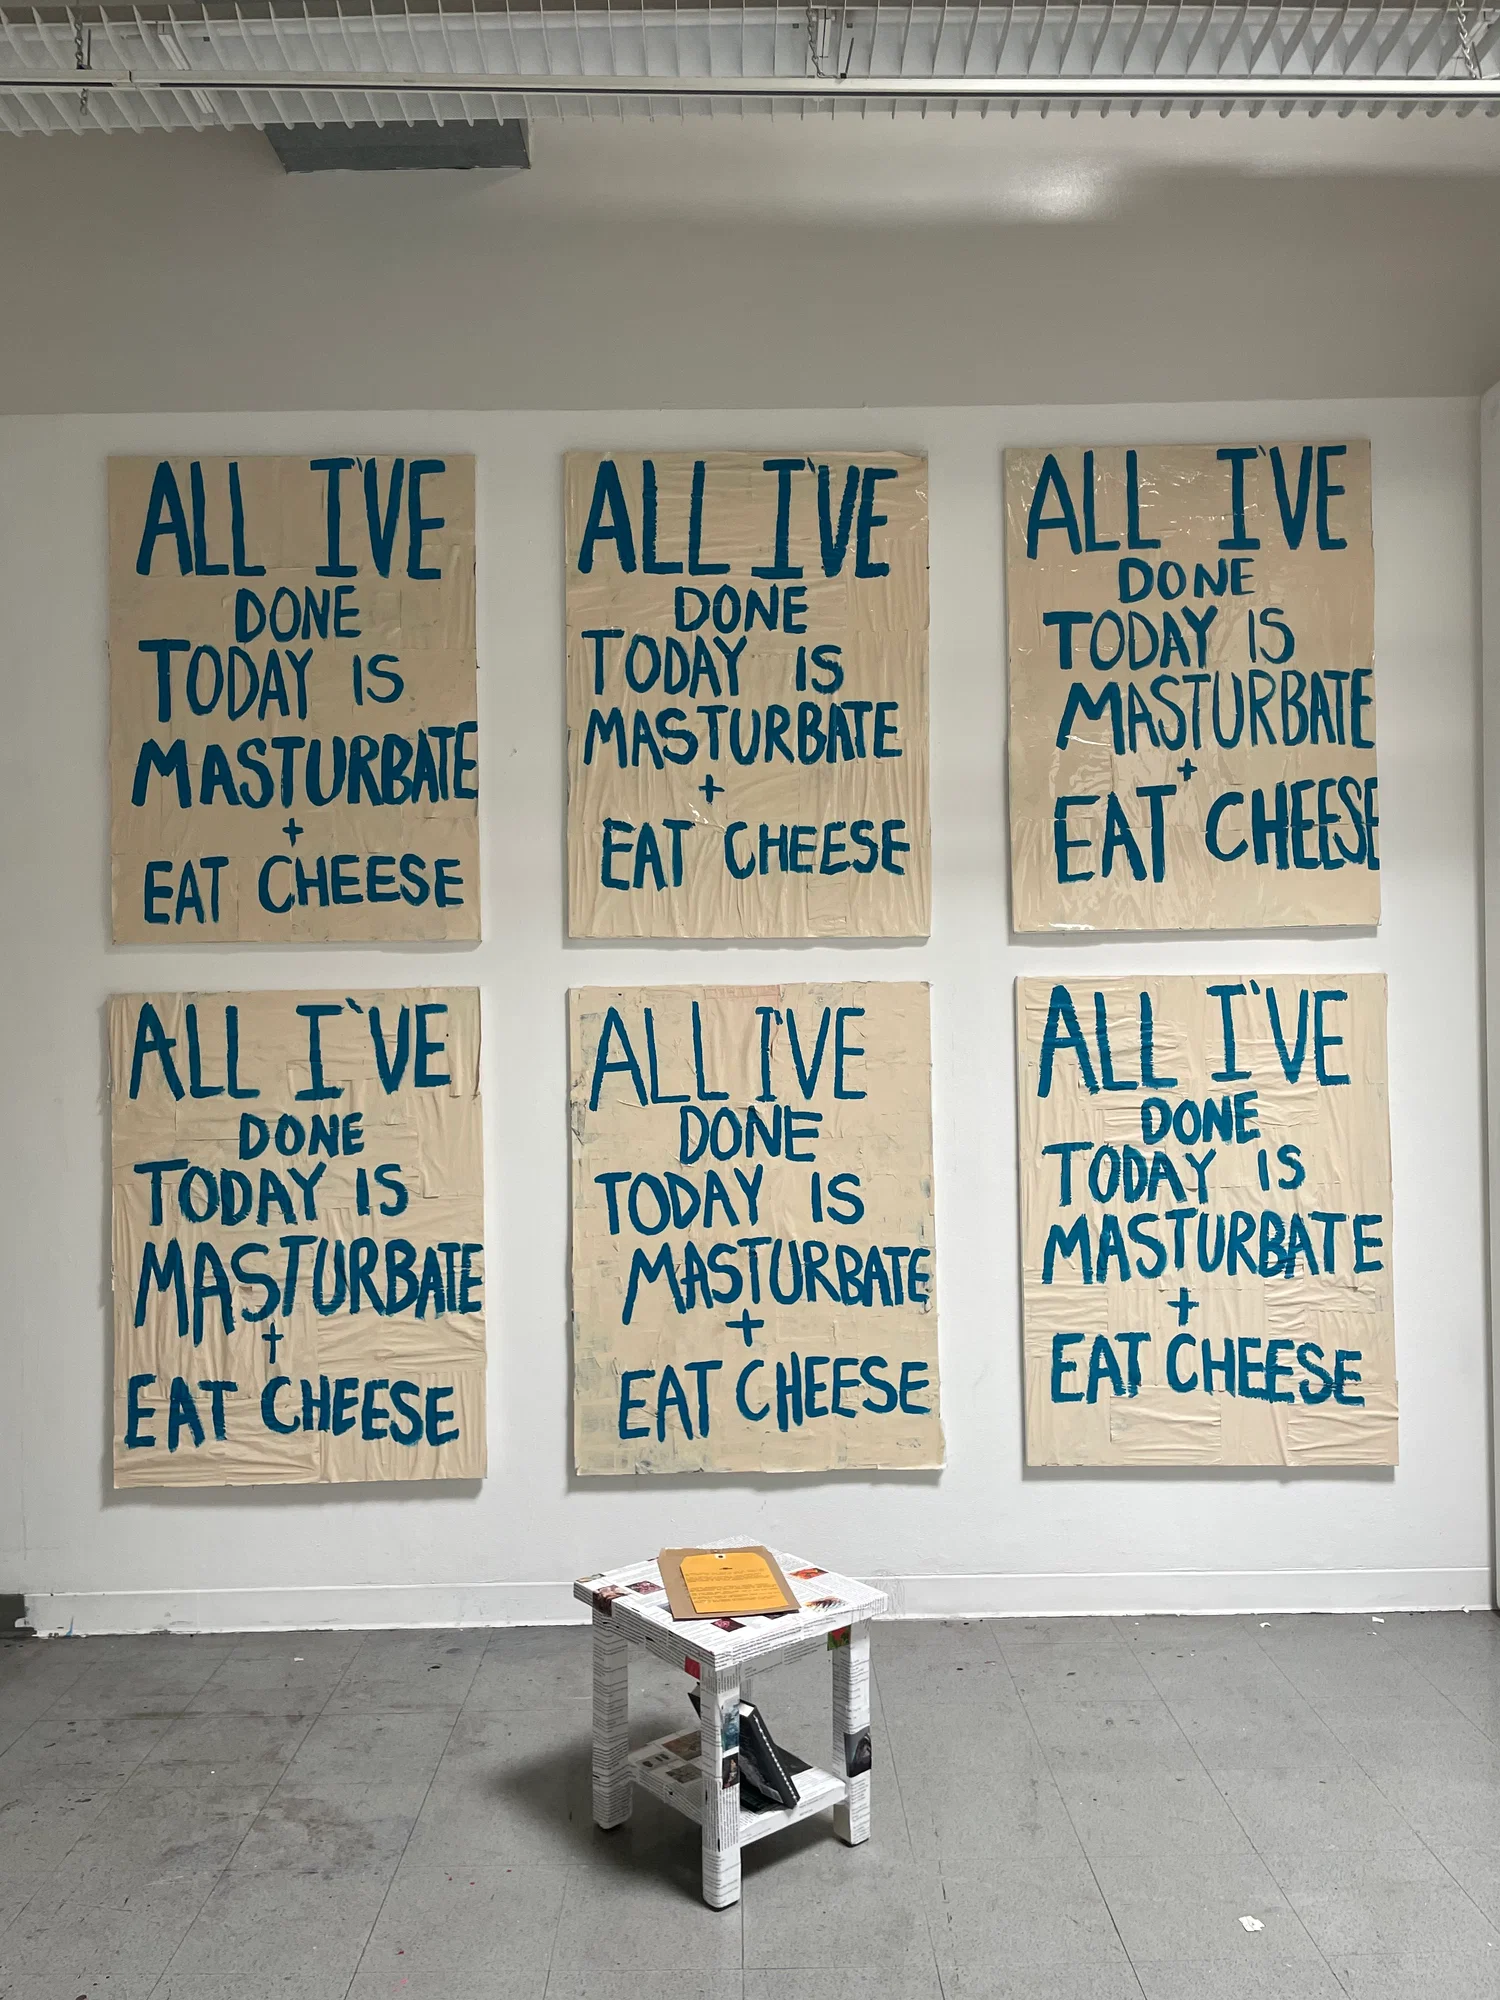 ALL I'VE
DONE
TODAY IS
MASTURBATE
+
EAT CHEESE
ALL I'VE
DONE
TODAY IS
MASTURBATE
+
EAT CHEESE
ALL I'VE
DONE
TODAY IS
MASTURBATE
+
EAT CHEESE
ALL I'VE
DONE
TODAY IS
MASTURBATE
+
EAT CHEESE
ALL I'VE
DONE
TODAY IS
MASTURBATE
+
EAT CHEESE
ALL I'VE
DONE
TODAY IS
MASTURBATE
+
EAT CHEESE